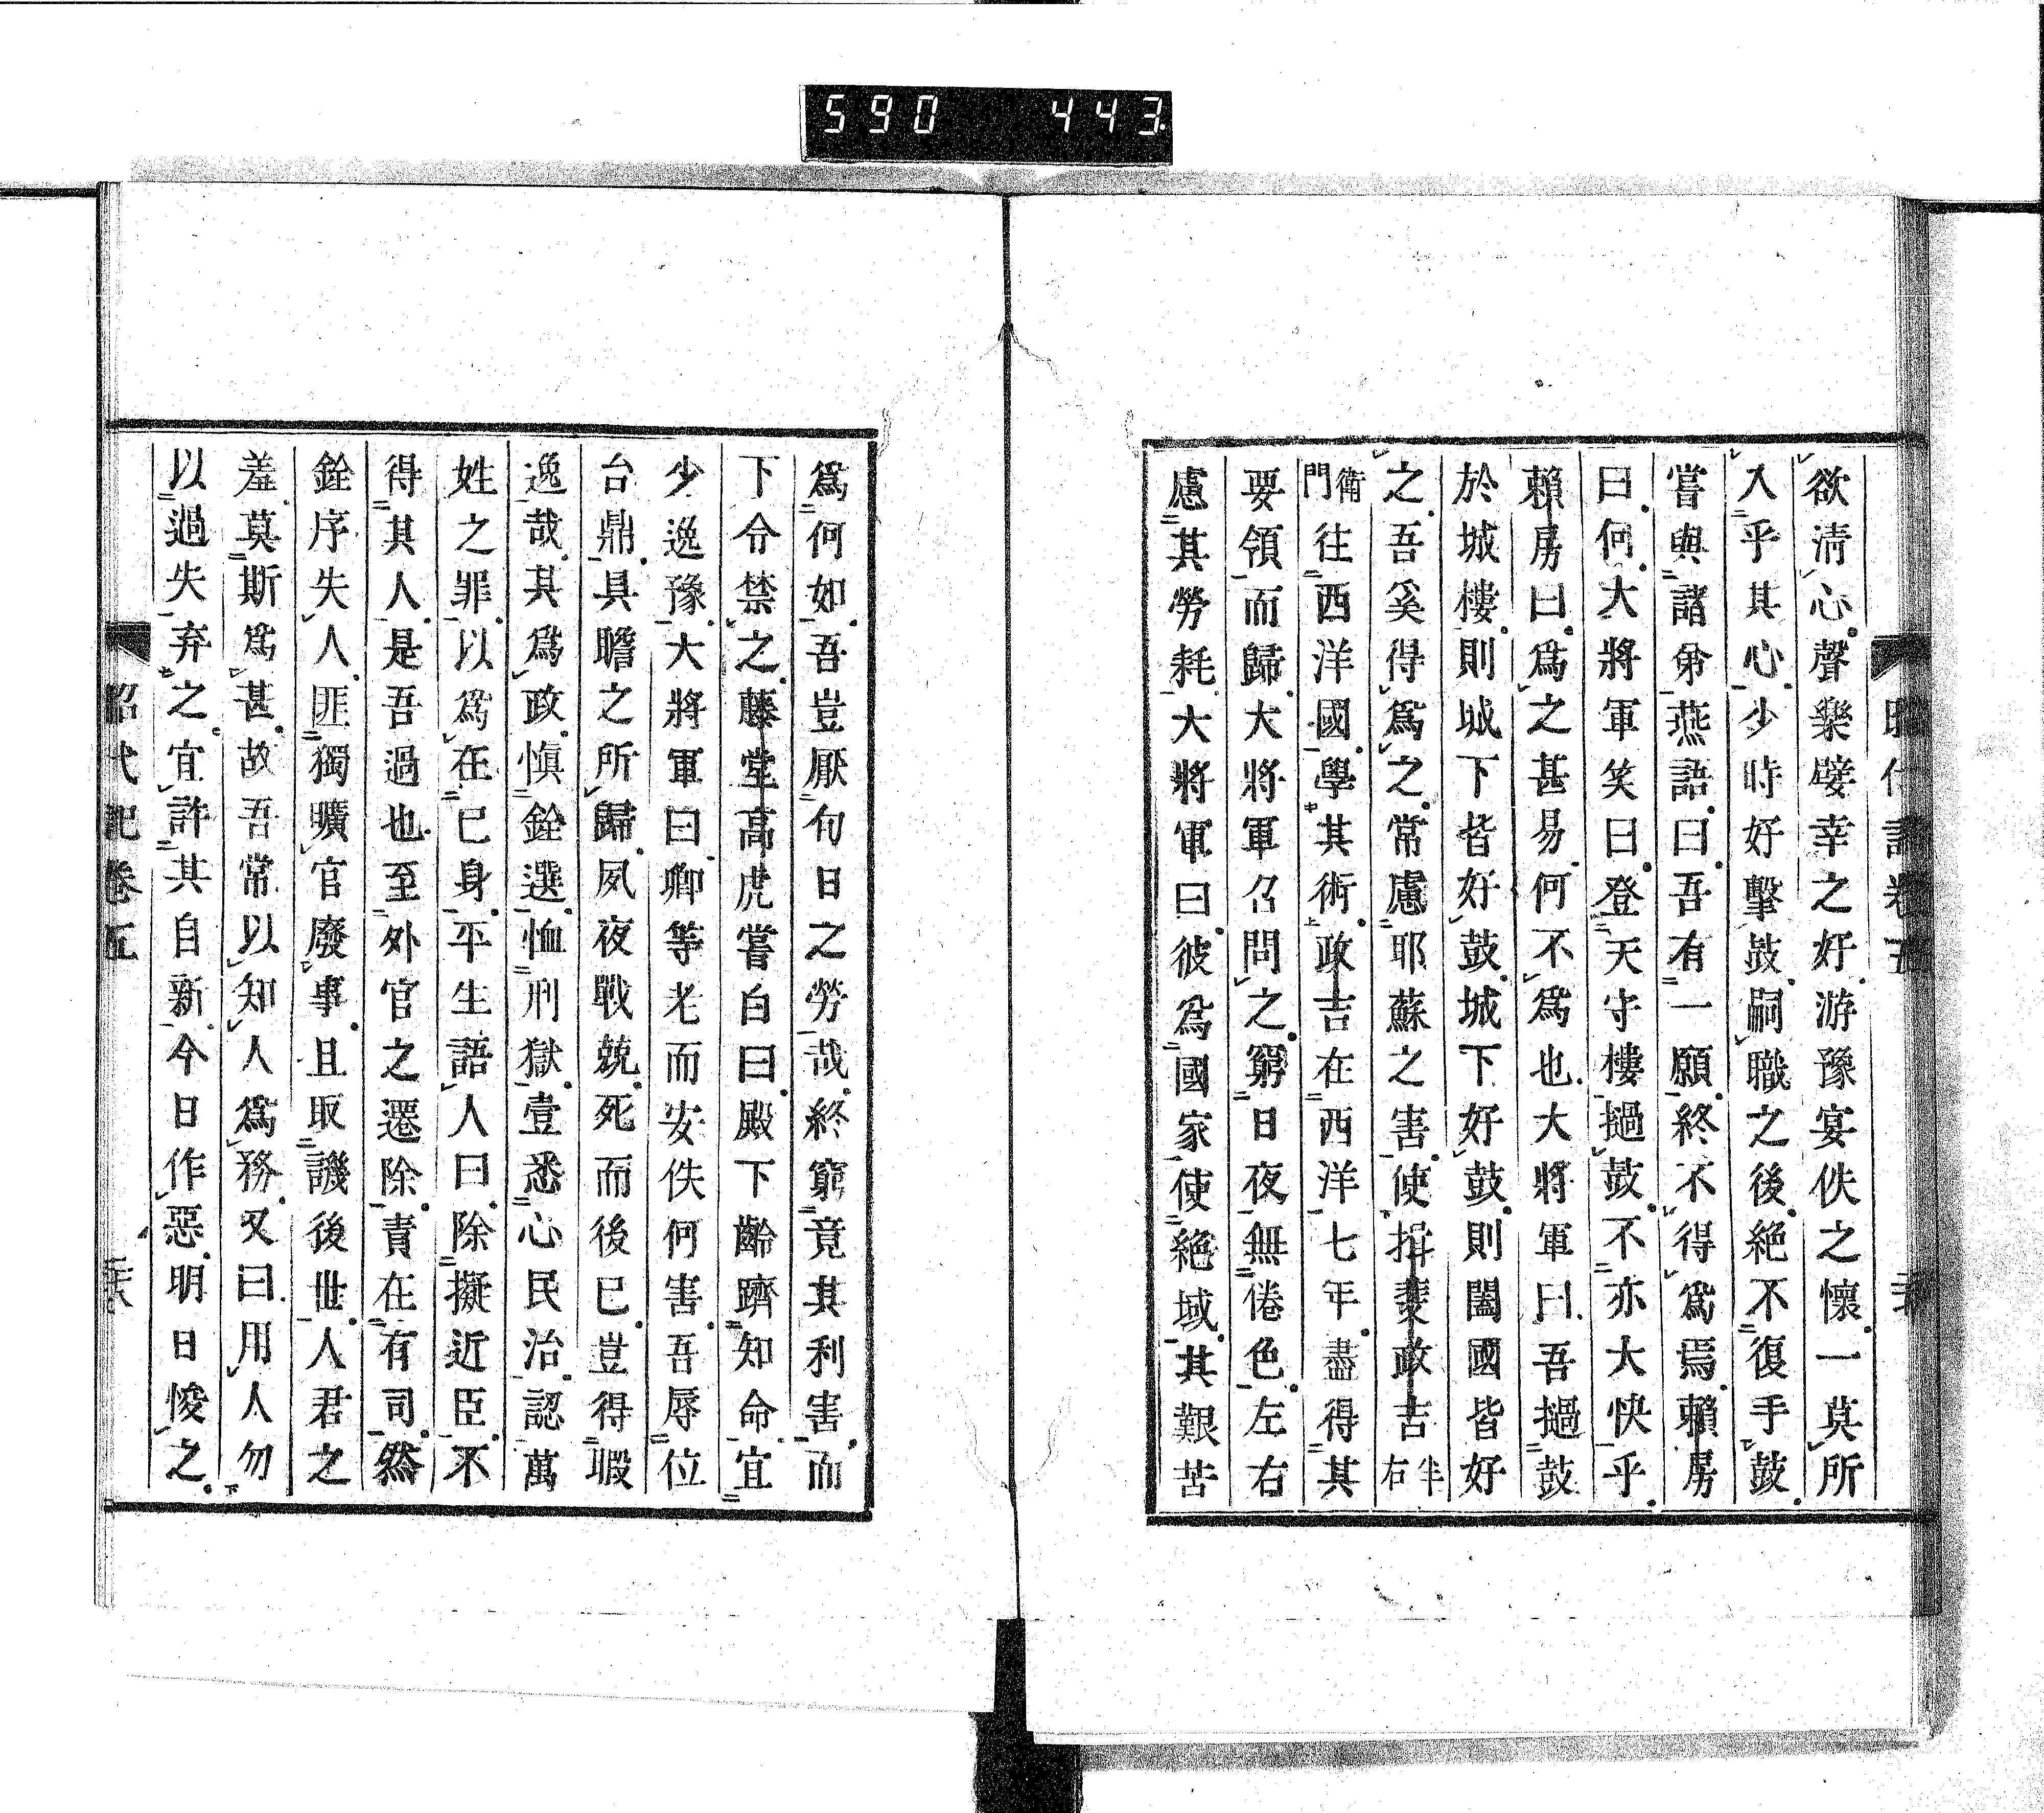 590 443
欲淸心聲樂嬖幸之好游豫宴佚之懷一莫所
入乎其心少時好擊鼓嗣職之後絶不復手鼓
嘗與諸弟燕語曰吾有一願終不得爲焉賴房
曰何大將軍笑曰登天守樓撾鼓不亦大快乎
賴房曰爲之甚易何不爲也大將軍曰吾撾鼓
於城樓則城下皆好鼓城下好鼓則闔國皆好
之吾奚得爲之常慮耶蘇之害使揖斐政吉半右
衛門往西洋國學其術政吉在西洋七年盡得其
要領而歸大將軍召問之窮日夜無倦色左右
慮其勞耗大將軍曰彼爲國家使絶域其艱苦
爲何如吾豈厭旬日之勞哉終窮竟其利害而
下令禁之藤堂高虎嘗白曰殿下齡躋知命宜
少逸豫大將軍曰卿等老而安佚何害吾辱位
台鼎具瞻之所歸夙夜戰兢死而後已豈得暇
逸哉其爲政愼銓選恤刑獄壹悉心民治認萬
姓之罪以爲在已身平生語人曰除擬近臣不
得其人是吾過也至外官之遷除責在有司然
銓序失人匪獨曠官廢事且取譏後世人君之
羞莫斯爲甚故吾常以知人爲務又曰用人勿
以過失弃之宜許其自新今日作惡明日悛之
昭代記卷五